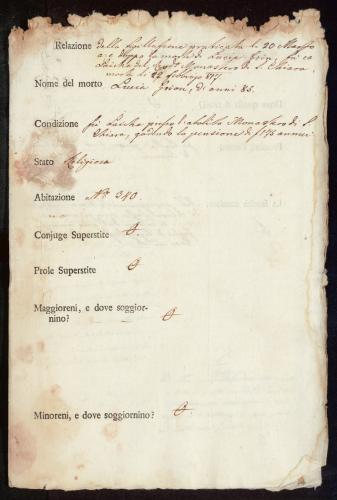 Relazione della praticata li 20 Marzo
a.c. dopo la morte di Lucia Grion, fu ex
Monastero di S. Chiara,
morta li 22 febbrajo 817.
Nome del morto Lucia Grion, di anni 85.
Condizione fù Laica presso l'abolito Monastero di S.
Chiara, godendo la pensione di f 175 annui
Stato Religiosa
Abitazione Nº 340.
Conjuge Superstite
Prole Superstite
Maggioreni, e dove soggior-
nino?
Minoreni, e dove soggiornino?